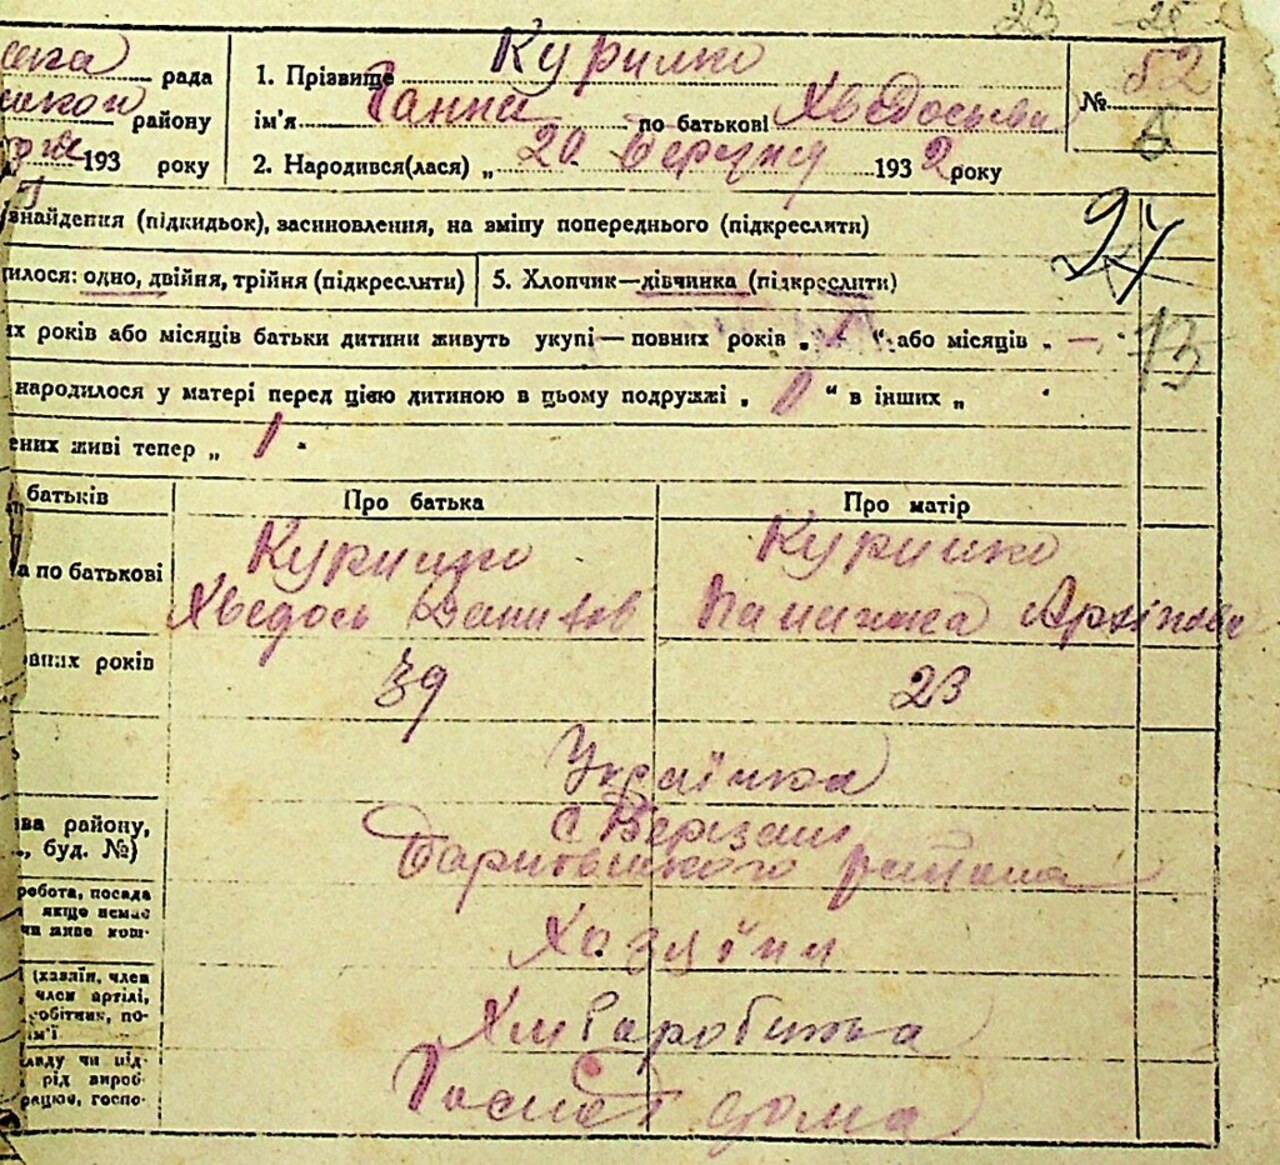 23 25
рада
1. Прізвище Курилко
№ 52
району
ім'я Ганна по батькові Хведосьева
193 року
2. Народився(лася) „ 20 березня 1932 року
знайдення (підкидьок), засиновлення, на зміну попереднього (підкреслити)
24
илося: одно, двійня, трійня (підкреслити)
5. Хлопчик—дівчинка (підкреслити)
их років або місяців батьки дитини живуть укупі — повних років „ “ або місяців „ —
13
народилося у матері перед цією дитиною в цьому подружжі „ “ в інших „
ених живі тепер „ 1 "
батьків
Про батька
Про матір
а по батькові
Курилко
Хведось Данилов
Курилко
Архіпова
овних років
39
23
Українка
ва району,
., буд. №)
с Березань
Баришівського района
робота, посада
якщо немає
чи живе кош-
Хазяїни
(хазяїн, член
член артілі,
обітник, по-
ім'ї
Хліборобства
аду чи під-
рід вироб
рацює, госпо-
Господ дома